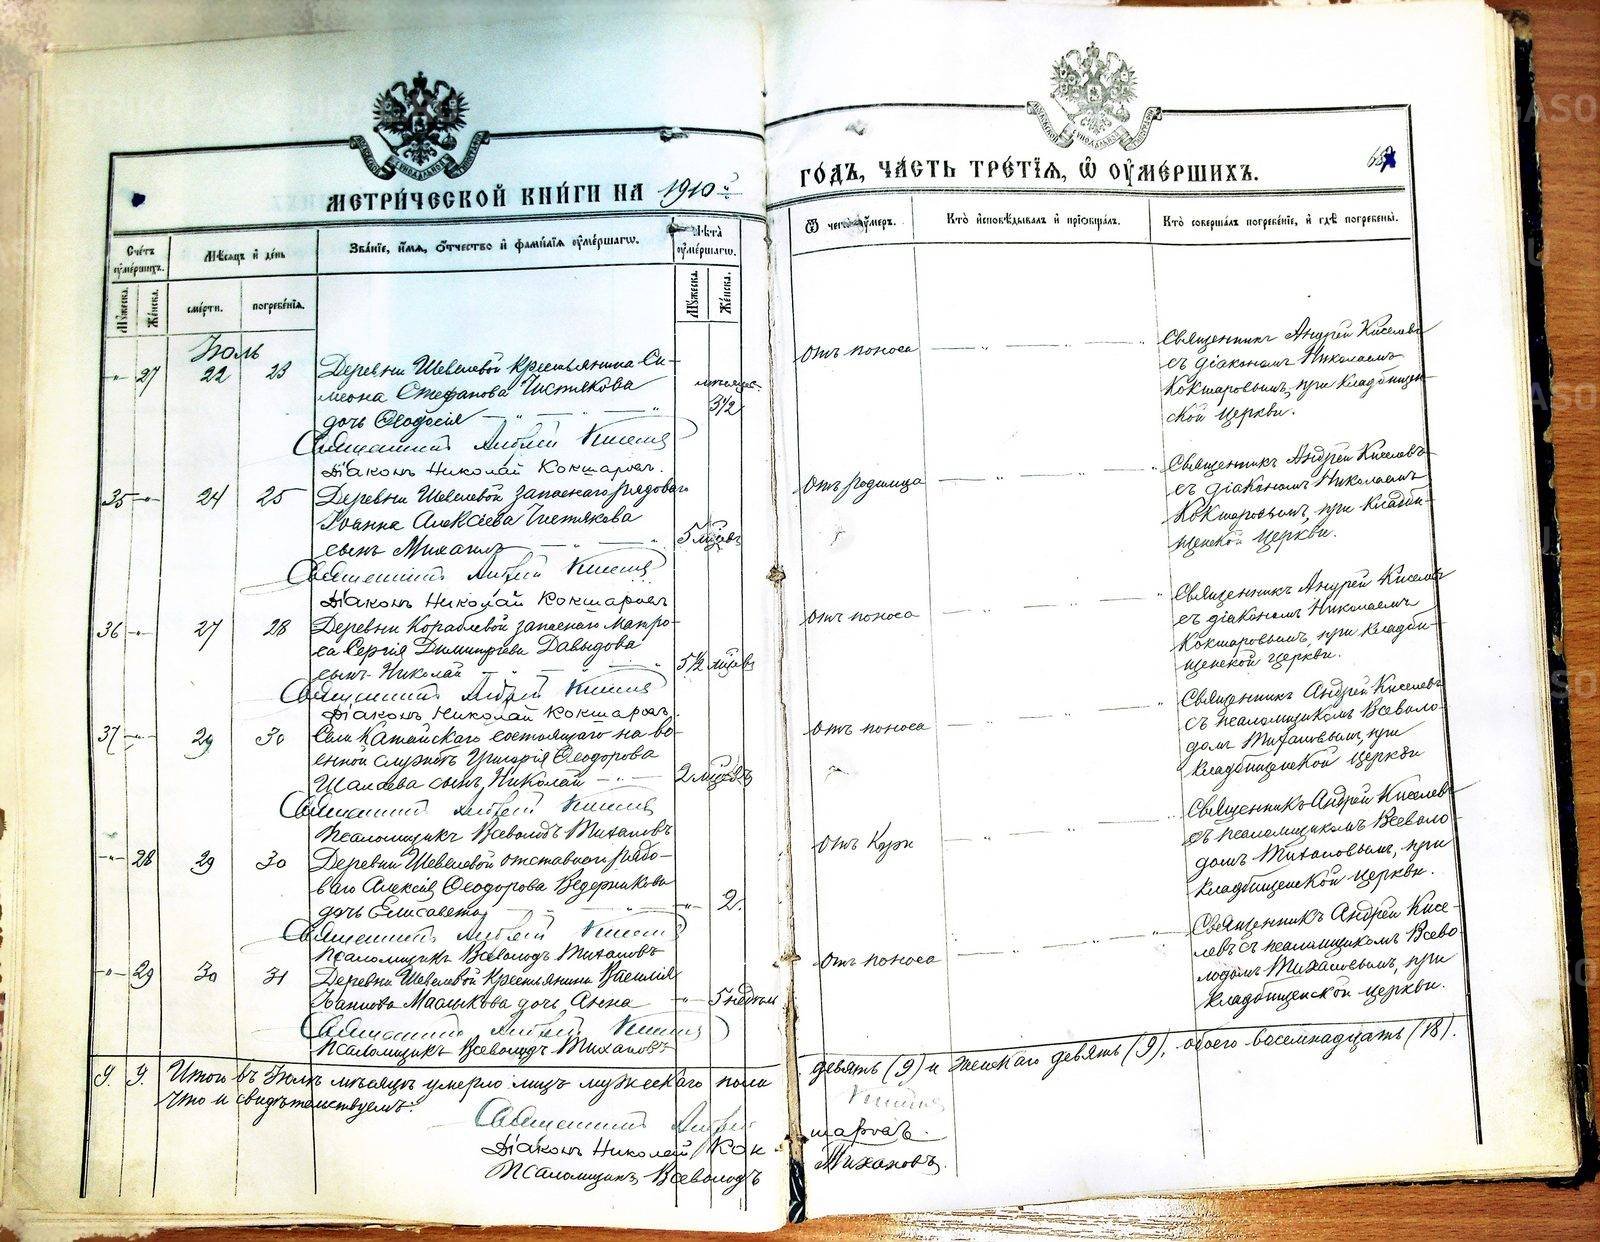 МЕТРИЧЕСКОЙ КНИГИ НА 1910й
ГОДЪ, ЧАСТЬ ТРЕТІЯ, Ѿ ОУМЕРШИХЪ.
Счетъ оумершихъ.
Мѣсяцъ и день
Званіе, имя, отчество и фамилія оумершагѡ.
Лѣта оумершагѡ.
Ѿ чего оумеръ.
Кто исповѣдывалъ и пріобщалъ.
Кто совершалъ погребеніе, и гдѣ погребены.
Мужеска.
Женска.
смерти.
погребенія.
Мужеска.
Женска.
Іюль
27 22 23 Деревни Шевелевой крестьянина Си-
меона Стефанова Чистякова
дочь Ѳеодосія
3½
Отъ поноса
Священникъ Андрей Киселевъ
съ діакономъ Николаемъ
Кокшаровымъ, при кладбищен-
ской церкви.
Священникъ Андрей Киселевъ
Діаконъ Николай Кокшаровъ.
35 24 25 Деревни Шевелевой запаснаго рядоваго
Іоанна Алексіева Чистякова
сынъ Михаилъ
5 мѣсяц.
Отъ родимца
Священникъ Андрей Киселевъ
съ діакономъ Николаемъ
Кокшаровымъ, при кладби-
щенской церкви.
Священникъ Андрей Киселевъ
Діаконъ Николай Кокшаровъ
36 27 28 Деревни Кораблевой запаснаго матро-
са Сергія Димитріева Давыдова
сынъ Николай
5½ мѣсяц.
Отъ поноса
Священникъ Андрей Киселевъ
съ діакономъ Николаемъ
Кокшаровымъ, при кладби-
щенской церкви.
Священникъ Андрей Киселевъ
Діаконъ Николай Кокшаровъ.
37 29 30 Села Катайскаго состоящаго на во-
енной службѣ Григорія Ѳеодорова
сынъ Николай
2 мѣсяц.
Отъ поноса
Священникъ Андрей Киселевъ
съ псаломщикомъ Всеволо-
домъ Тихановымъ, при
кладбищенской церкви
Священникъ Андрей Киселевъ
Псаломщикъ Всеволодъ Тихановъ
28 29 30 Деревни Шевелевой отставного рядо-
ваго Алексія Ѳеодорова Ведерникова
дочь Елисавета
2.
Отъ кори
Священникъ Андрей Киселевъ
съ псаломщикомъ Всеволо-
домъ Тихановымъ, при
кладбищенской церкви.
Священникъ Андрей Киселевъ
Псаломщикъ Всеволодъ Тихановъ
29 30 31 Деревни Шевелевой крестьянина Василія
дочь Анна
5 недѣль
Отъ поноса
Священникъ Андрей Кисе-
левъ съ псаломщикомъ Всево-
лодомъ Тихановымъ, при
кладбищенской церкви.
Священникъ Андрей Киселевъ
Псаломщикъ Всеволодъ Тихановъ
9. 9. Итого въ Іюлѣ мѣсяцѣ умерло лицъ мужескаго пола девять (9) и женскаго девять (9), обоего восемнадцать (18).
Что и свидѣтельствуемъ:
Священникъ Андрей Киселевъ
Діаконъ Николай Кокшаровъ.
Псаломщикъ Всеволодъ Тихановъ.